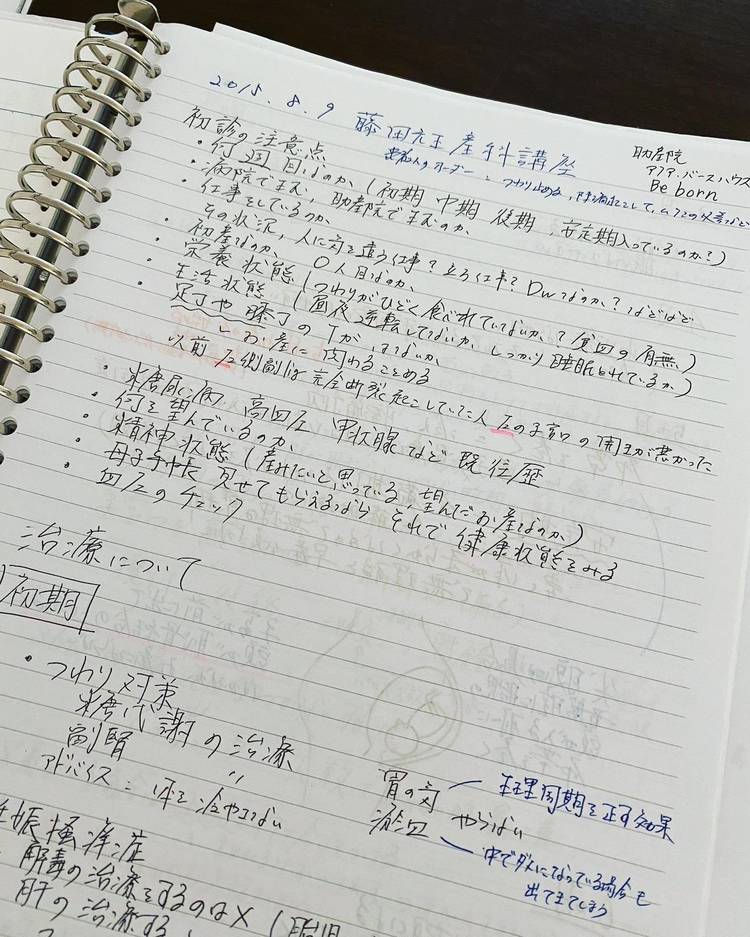 2015.8.9 藤田 産科講座
助産院
アクア・バースハウス
Be born
初診の注意点
・何週目なのか(初期 中期 後期 安定期入っているのか?)
・病院でキズ,助産院でキズのか、
・仕事をしているのか、
その状況,人に気を遣う仕事? 立ち仕事? Dwなのか? などなど
・初産なのか、〇人目なのか、
・栄養状態(つわりがひどく食べれていないか、? 貧血の有無)
・生活状態(昼夜逆転してないか、しっかり睡眠とれているか)
・足丁や膝丁のTがないか、
お産に関わることある
以前左側副は完全断裂起こしていた人 左の子宮口の開きが悪かった
・糖尿病 高血圧 甲状腺など既往歴
・何を望んでいるのか、
・精神状態(産みたいと思っている,望んだお産なのか)
・母子手帳見せてもらえるなら それで健康状態をみる
・血圧のチェック
治療について
初期
・つわり対策
糖代謝の治療
副腎 〃
アドバイス:体を冷やさない
胃の気 ― 生理周期を正す効果
瘀血 やらない
中でダメになっている場合も
出てきてしまう
妊娠掻痒症
解毒の治療をするのは×(胎児
肝の治療する